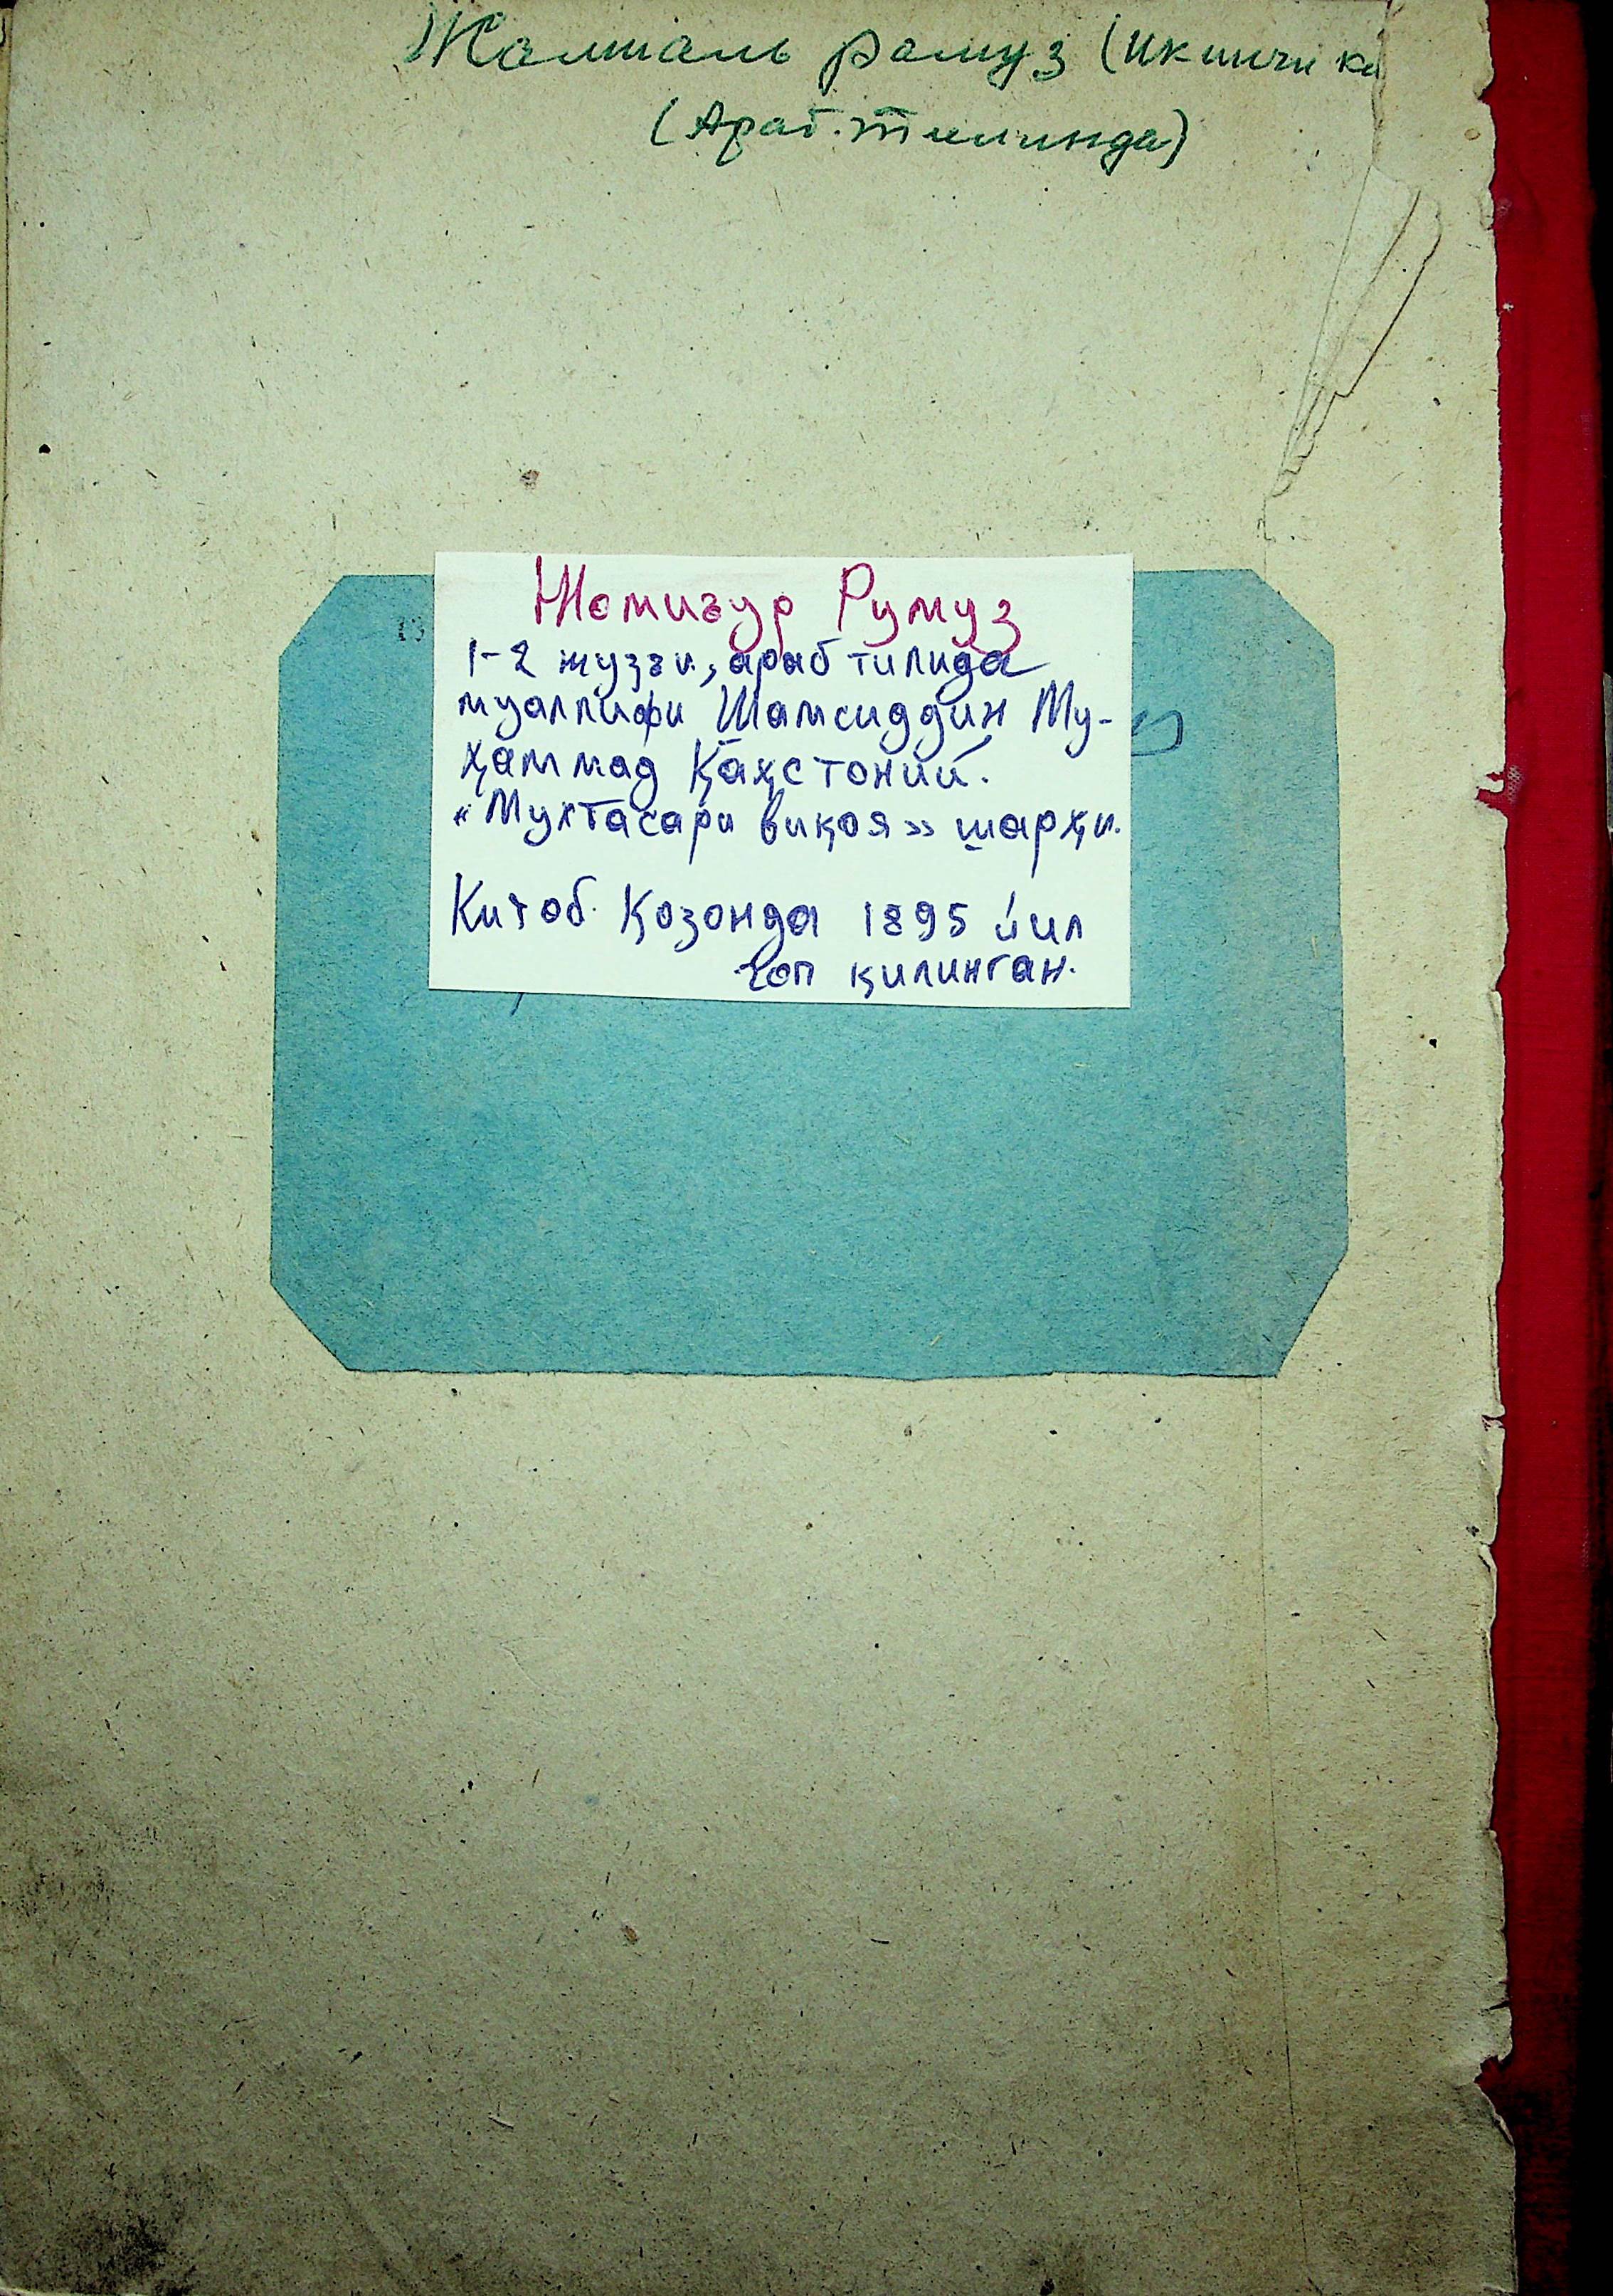 рамуз (Икинчи ки
(Араб. тилинда)
Жомигур Румуз
1-2 жузги, араб тилида
муаллифи Шамсиддин Му-
ҳаммад Қаҳстоний.
«Мухтасари виқоя» шарҳи.
Китоб Қозонда 1895 йил
чоп қилинган.